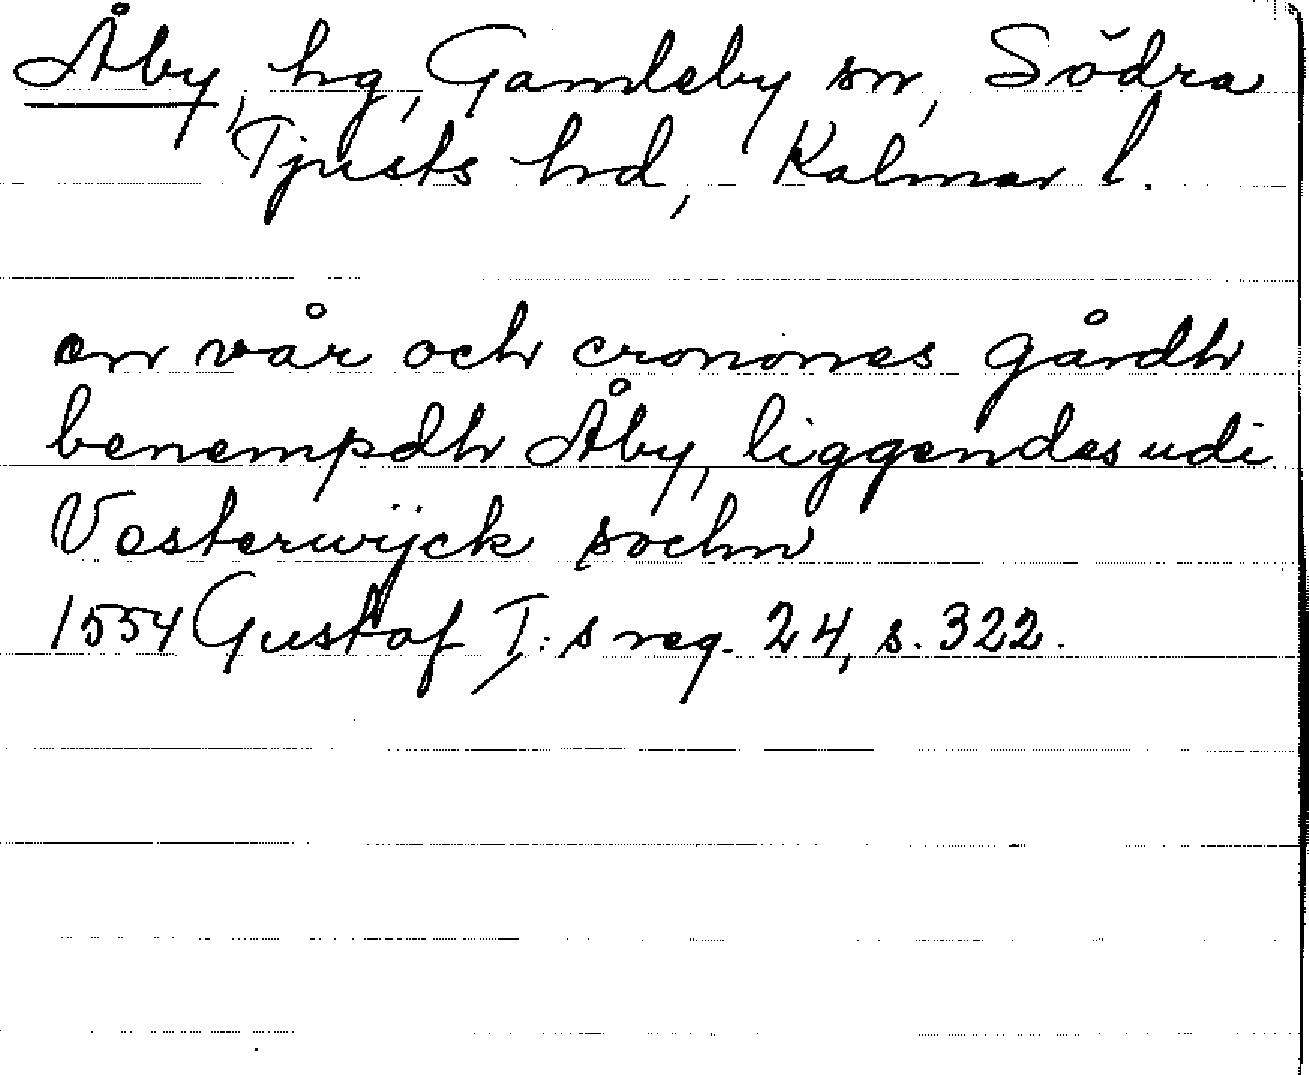 Åby, hg, Gamleby sn, Södra
Tjusts hrd, Kalmar l.
en vår och cronones gårdh
benempdh Åby, liggendes udi
Vesterwijck sochn
1554 Gustaf I:s reg. 24, s. 322.